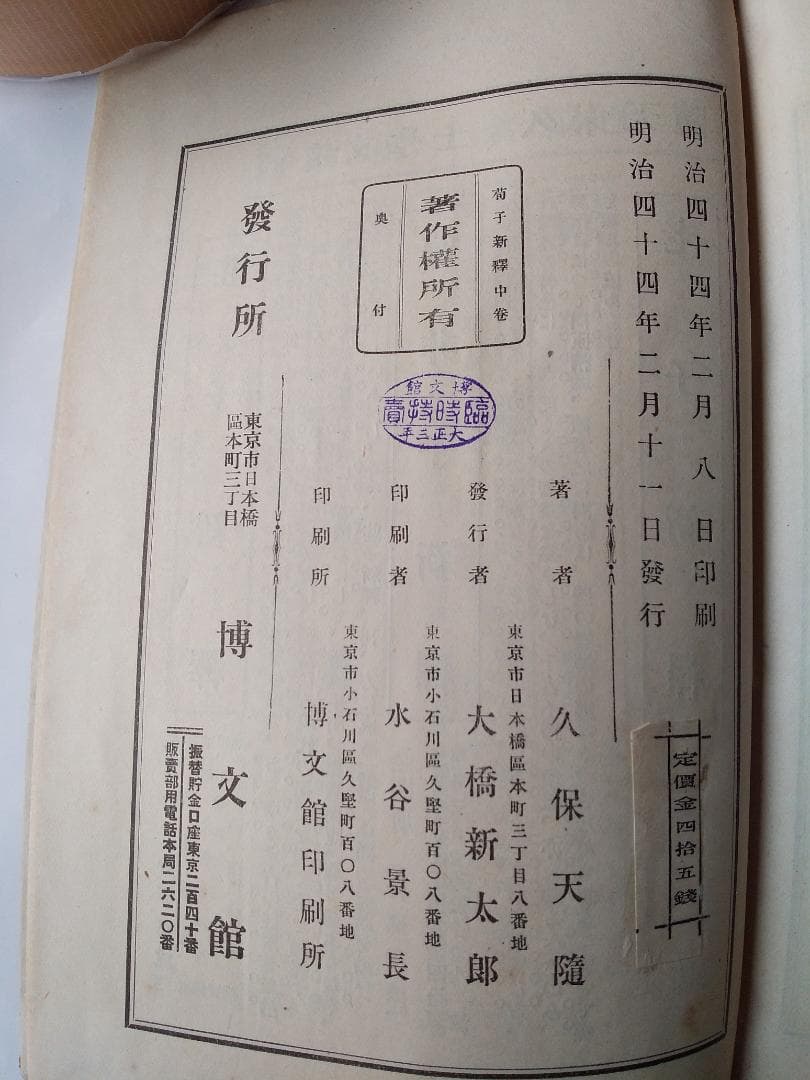 明治四十四年二月八日印刷
明治四十四年二月十一日發行
定價金四拾五錢
荀子新釋中卷
著作權所有
奥付
博文館
臨時特賣
大正三年
著者
久保天隨
東京市日本橋區本町三丁目八番地
發行者
大橋新太郎
東京市小石川區久堅町百〇八番地
印刷者
水谷景長
東京市小石川區久堅町百〇八番地
印刷所
博文館印刷所
發行所
東京市日本橋
區本町三丁目
博文館
振替貯金口座東京二百四十番
販賣部用電話本局二六二〇番